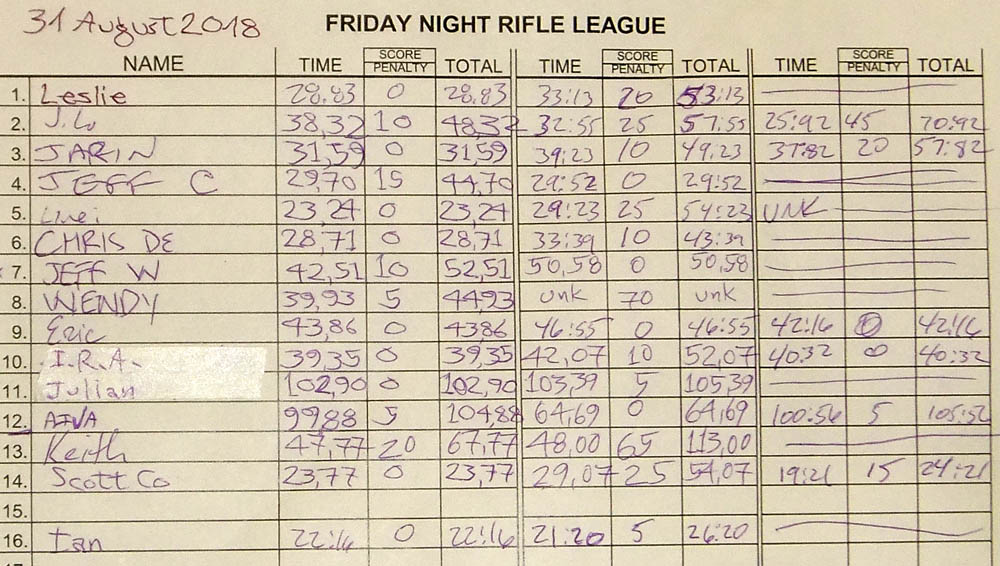 31 August 2018
FRIDAY NIGHT RIFLE LEAGUE
NAME TIME SCORE PENALTY TOTAL TIME SCORE PENALTY TOTAL TIME SCORE PENALTY TOTAL
1. Leslie 28.83 0 28.83 33:13 20 53:13
2. J.Lo 38,32 10 48,32 32:55 25 57:55 25:92 45 70:92
3. JARIN 31,59 0 31,59 39:23 10 49:23 37:82 20 57:82
4. JEFF C 29,70 15 44,70 29:52 0 29:52
5. 23,24 0 23,24 29:23 25 54:23 UNK
6. CHRIS DE 28,71 0 28,71 33:39 10 43:39
7. JEFF W 42,51 10 52,51 50,58 0 50,58
8. WENDY 39,93 5 44,93 unk 70 unk
9. Eric 43,86 0 43,86 46:55 0 46:55 42:16 0 42:16
10. I.R.A. 39,35 0 39,35 42,07 10 52,07 40:32 0 40:32
11. Julian 102,90 0 102,90 103,39 5 105,39
12. 99,88 5 104,88 64,69 0 64,69 100:56 5 105:56
13. Keith 47,77 20 67,77 48,00 65 113,00
14. Scott Co 23,77 0 23,77 29,07 25 54,07 19:21 15 24:21
15.
16. Ian 22:16 0 22:16 21:20 5 26:20